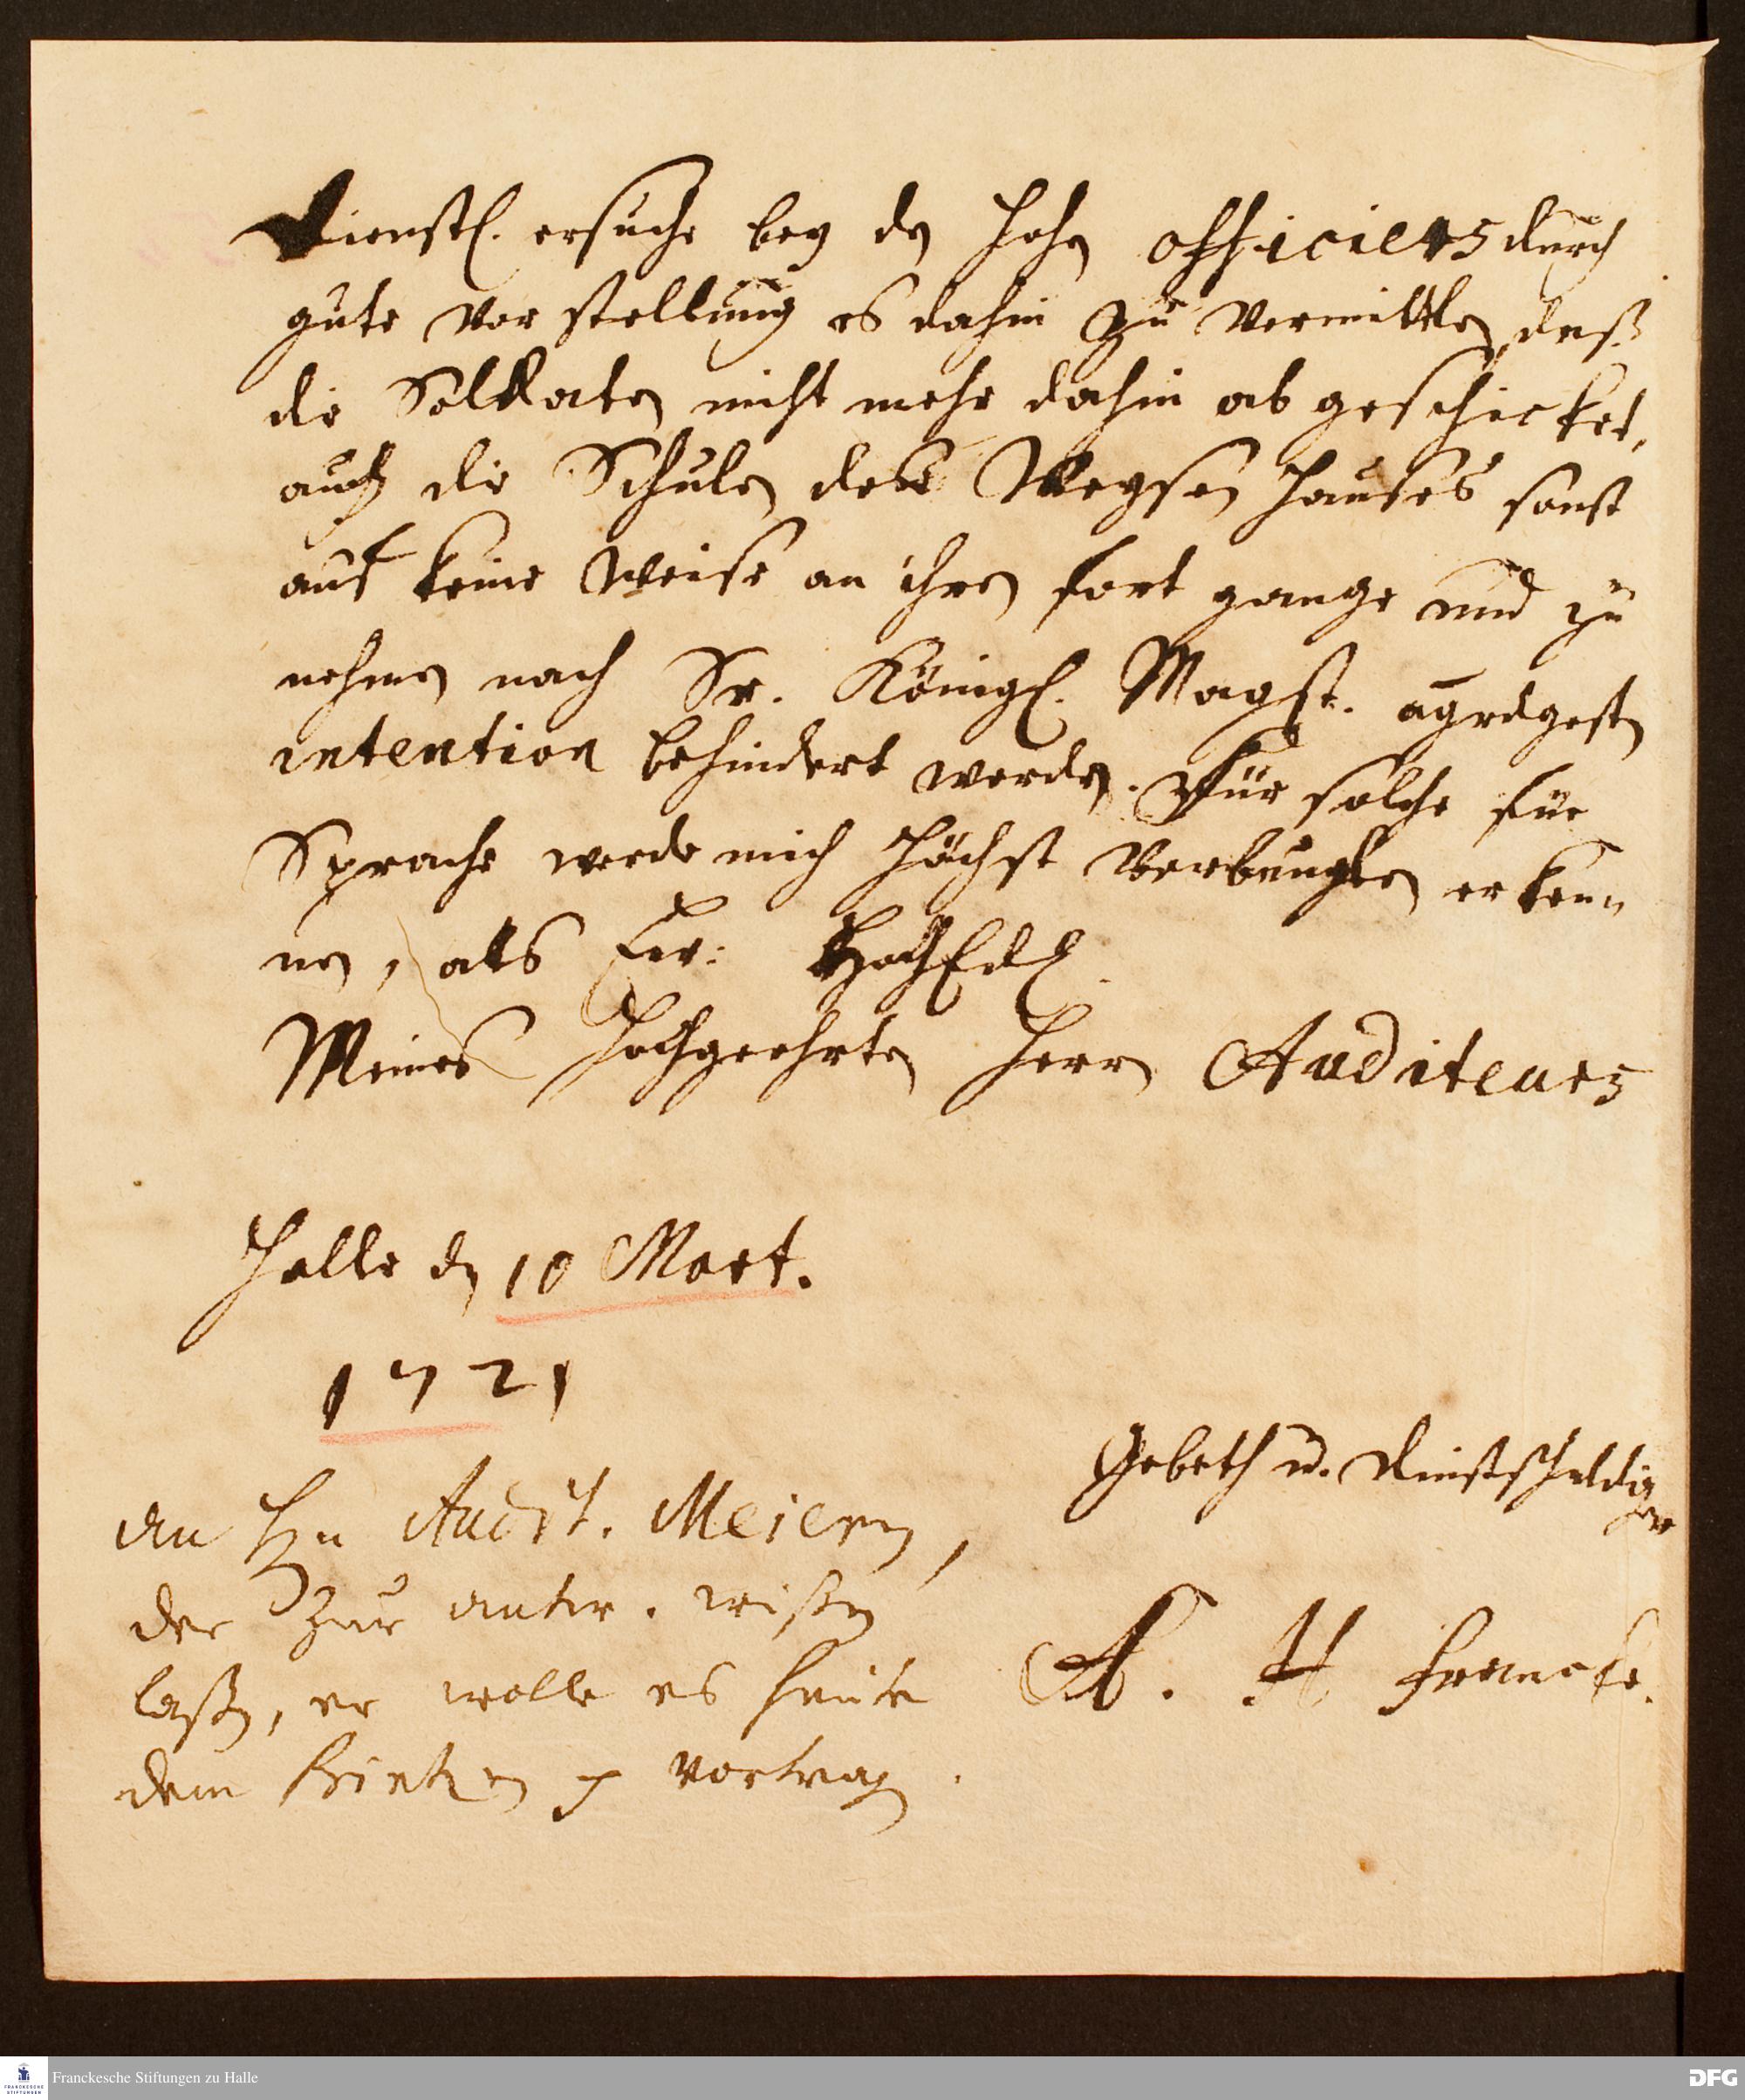 Dienstl. ersuche bey den Hohen officiers durch
gute Vorstellung es dahin zu vermittlen, daß
die Soldaten nicht mehr dahin abgeschicket,
auch die Schulen des Waysen Hauses sonst
auf keine Weise an ihren fortgange und zu
nehmen nach Sr. Königl. Mayst. agrdgesten
intention behindert werden. Für solche für
Sprache werde mich Höchst Verbunden erken
nen, als Ew. HochEdl.
Meines Hochgeehrten Herrn Auditeurs
Halle den 10 Mart.
1721
Gebeth u. Dienstschuldig
er
A. H Francke.
An Hn Audit. Meiern,
der zur antw. wißen
laßen, er wolle es heute
dem vortragen.
Franckesche Stiftungen zu Halle
FRANCKESCHE
STIFTUNGEN
DFG